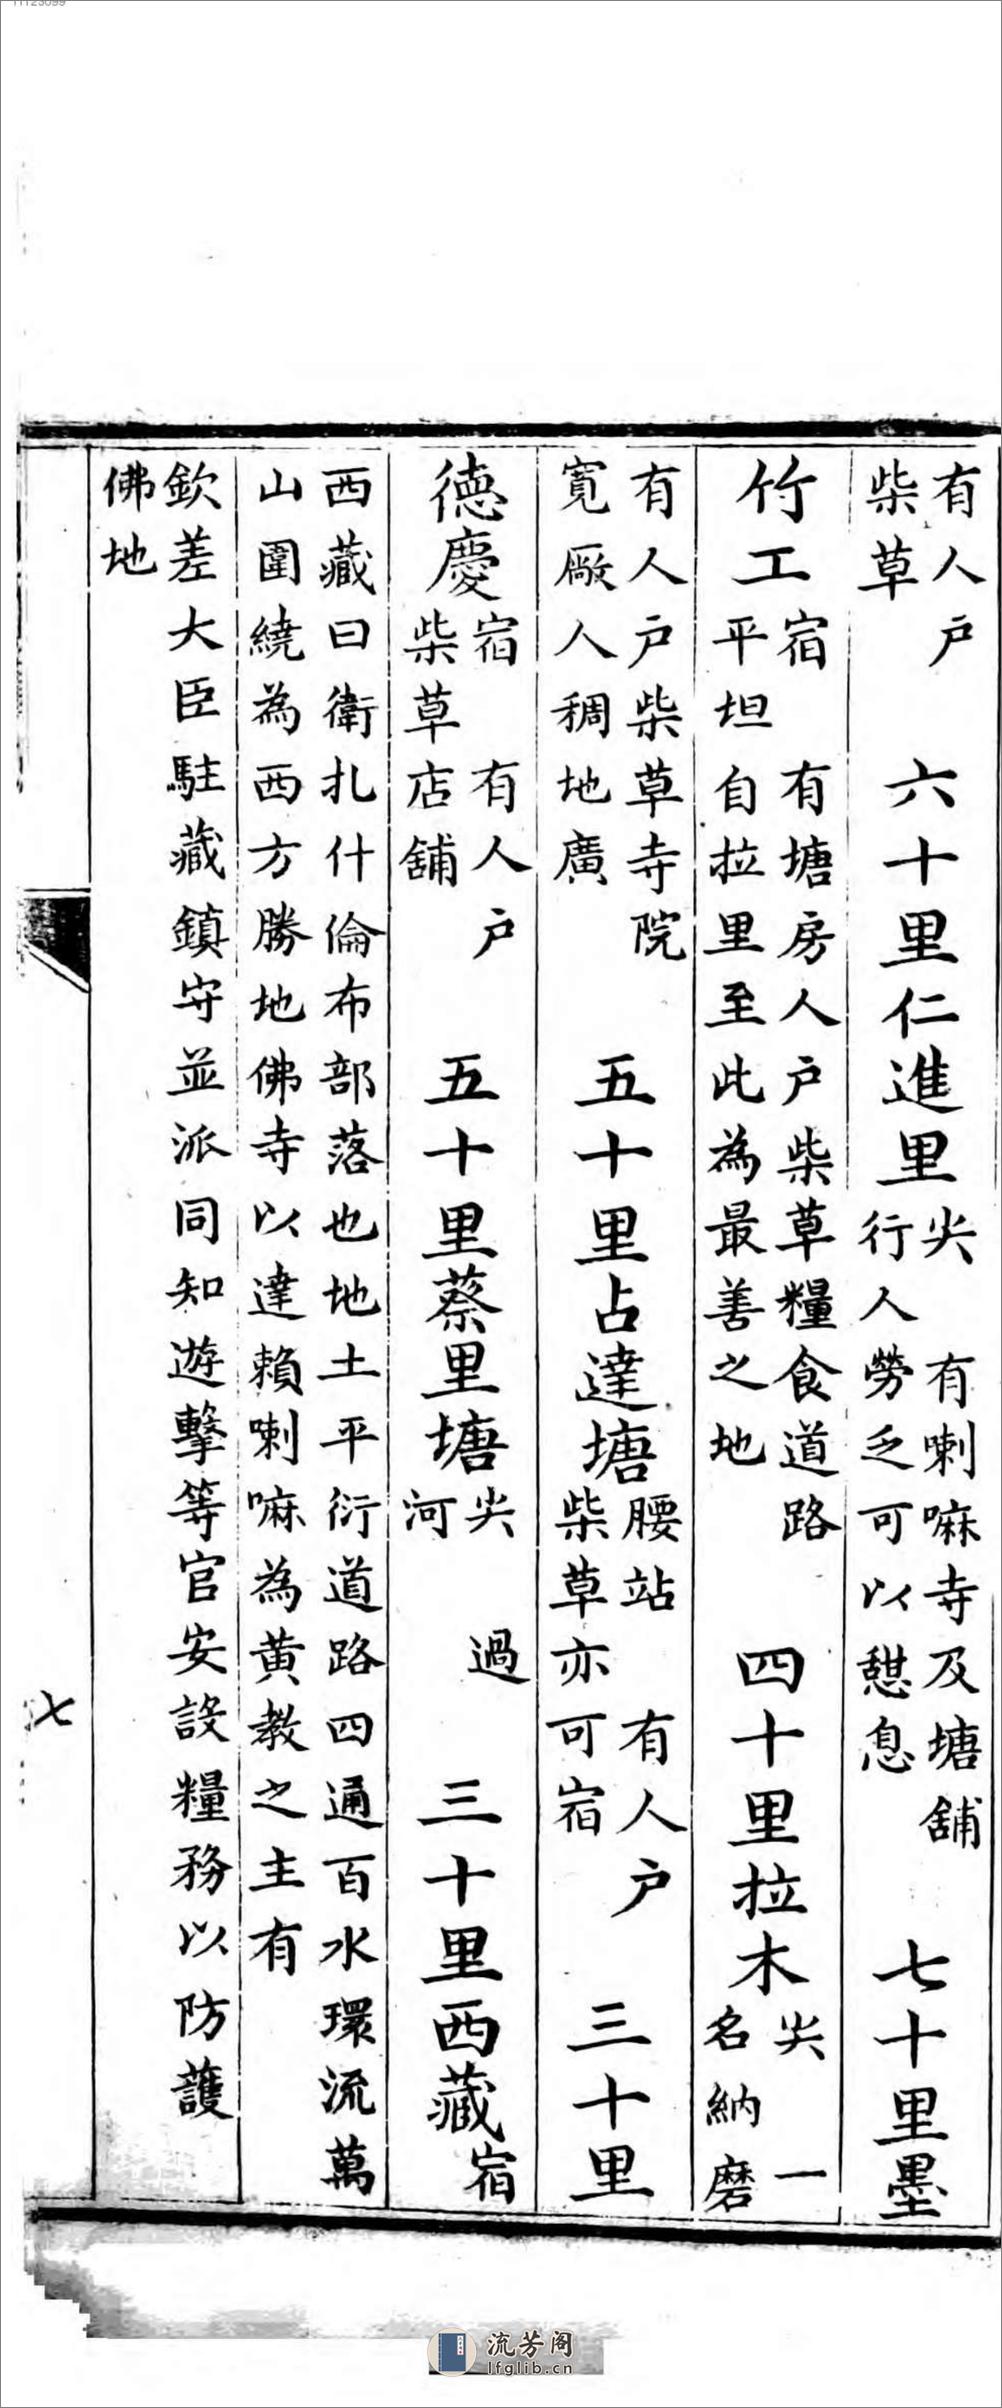 11123099
有人户
柴草
六十里仁進里
尖 有喇嘛寺及塘舖
行人勞乏可以憇息
七十里墨
竹工
宿 有塘房人户柴草糧食道路
平坦自拉里至此為最善之地
四十里拉木
尖 一
名納磨
有人户柴草寺院
寬厰人稠地廣
五十里占達塘
腰站 有人户
柴草亦可宿
三十里
德慶
宿 有人户
柴草店舖
五十里蔡里塘
尖 過
河
三十里西藏
宿
西藏曰衛扎什倫布部落也地土平衍道路四通百水環流萬
山圍繞為西方勝地佛寺以達賴喇嘛為黄教之主有
欽差大臣駐藏鎮守並派同知遊擊等官安設糧務以防護
佛地
七
流芳阁
lfglib.cn